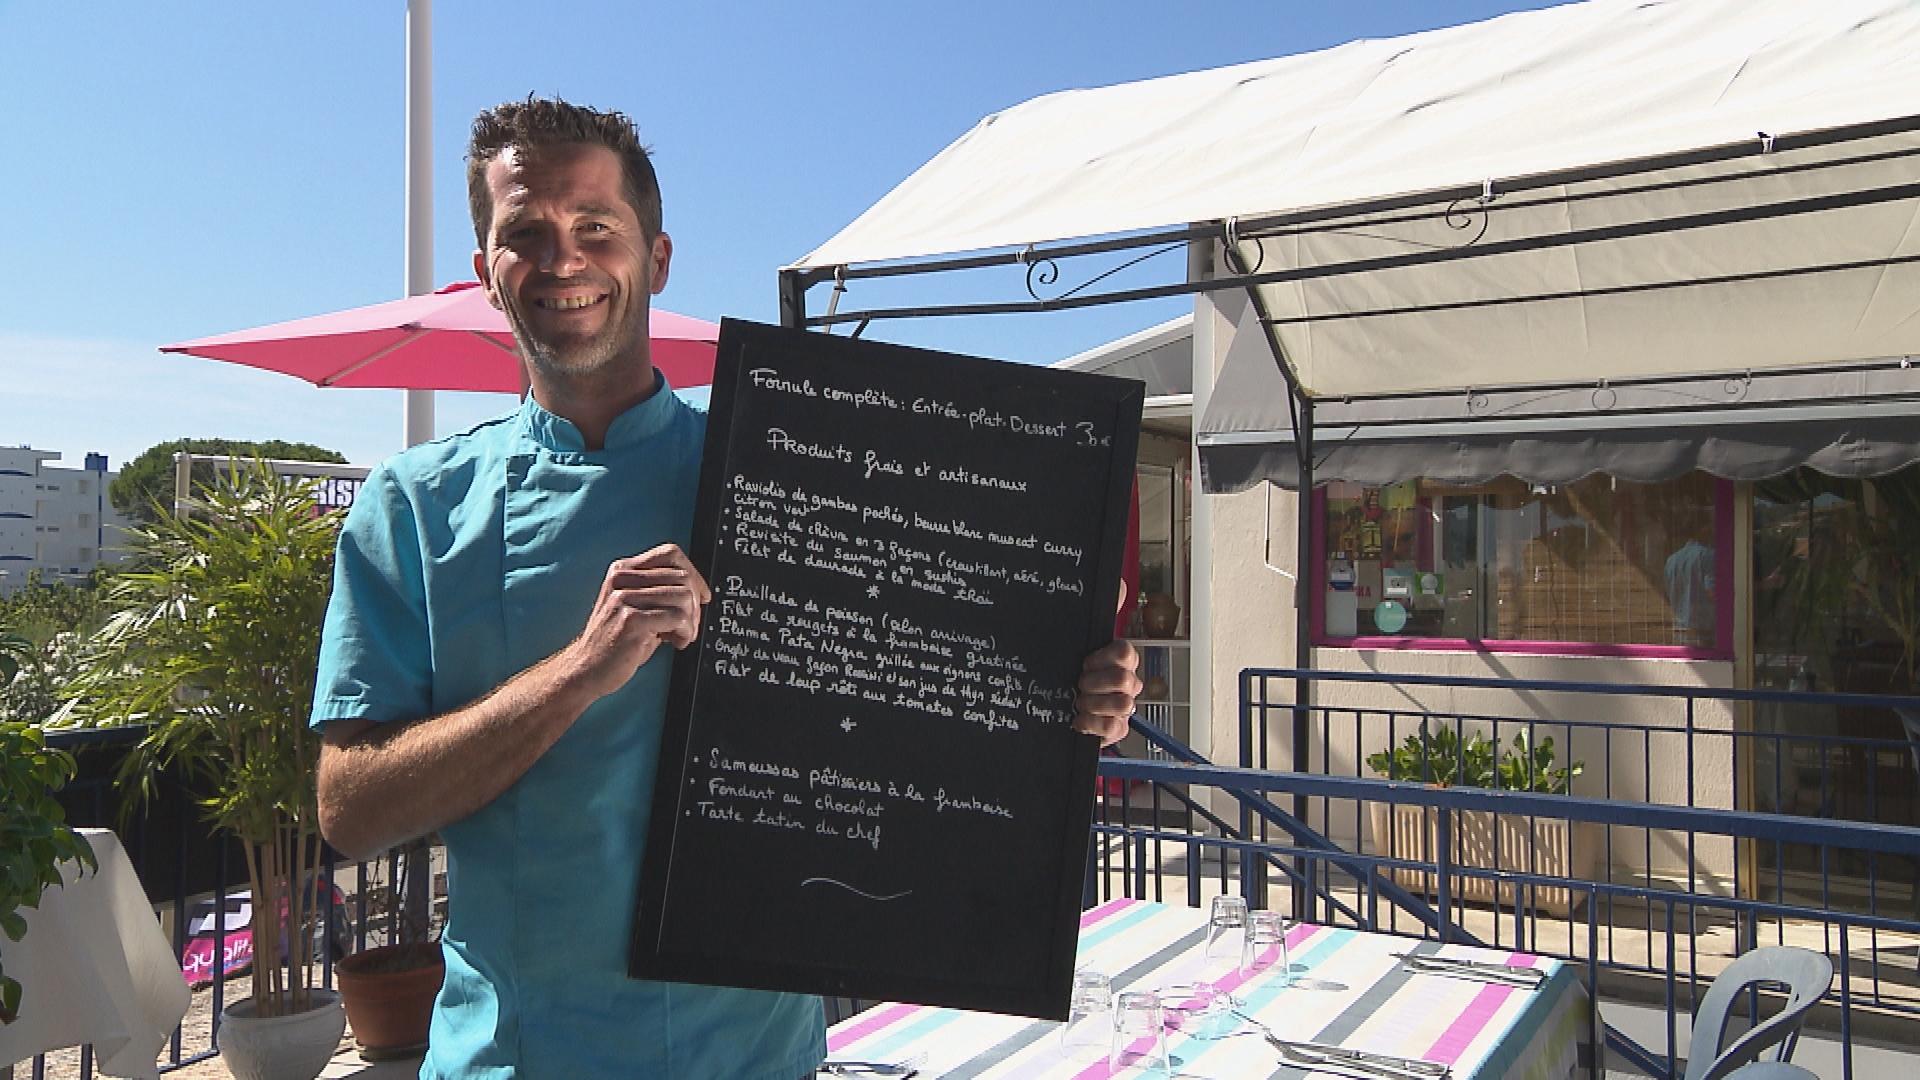 Formule complète : Entrée-plat-Dessert 30€
Produits frais et artisanaux
• Raviolis de gambas pochés, beurre blanc muscat curry
citron vert
• Salade de chèvre en 3 façons (croustillant, aéré, glace)
• Revisite du Saumon en sushis
• Filet de daurade à la mode thaï
*
• Parillada de poisson (selon arrivage)
Filet de rougets à la framboise gratinée
• Pluma Pata Negra grillée aux oignons confits (supp 5€)
• Onglet de veau façon Rossini et son jus de thym réduit (supp. 3€)
Filet de loup rôti aux tomates confites
*
• Samoussas pâtissiers à la framboise
• Fondant au chocolat
• Tarte tatin du chef
qualit